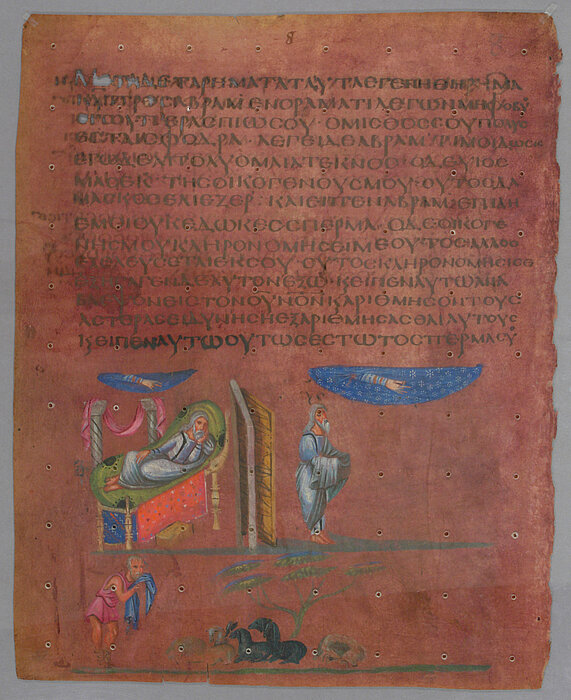 8
ΔΕΤΑΡΗΜΑΤΑΤΑΥΤΑΕΓΕΝΗΘΗΡΗΜΑ
ΠΡΟΣΑΒΡΑΜΕΝΟΡΑΜΑΤΙΛΕΓΩΝΜΗΦΟΒΟΥ
ΥΠΕΡΑΣΠΙΖΩΣΟΥ·ΟΜΙΣΘΟΣΣΟΥΠΟΛΥΣ
ΕΣΤΑΙΣΦΟΔΡΑ·ΛΕΓΕΙΔΕΑΒΡΑΜ·ΤΙΜΟΙΔΩΣΕΙΣ
ΕΓΩΔΕΑΠΟΛΥΟΜΑΙΑΤΕΚΝΟΣ·ΟΔΕΥΙΟΣ
ΜΑΣΕΚ·ΤΗΣΟΙΚΟΓΕΝΟΥΣΜΟΥ·ΟΥΤΟΣΔΑ
ΜΑΣΚΟΣΕΛΙΕΖΕΡ·ΚΑΙΕΙΠΕΝΑΒΡΑΜ·ΕΠΙΔΗ
ΕΜΟΙΟΥΚΕΔΩΚΕΣΣΠΕΡΜΑ·ΟΔΕΟΙΚΟΓΕ
ΝΗΣΜΟΥΚΛΗΡΟΝΟΜΗΣΕΙΜΕΟΥΤΟΣ·ΑΛΛΟΣ
ΕΞΕΛΕΥΣΕΤΑΙΕΚΣΟΥ·ΟΥΤΟΣΚΛΗΡΟΝΟΜΗΣΕΙΣΕ
ΕΞΗΓΑΓΕΝΔΕΑΥΤΟΝΕΞΩ·ΚΕΙΠΕΝΑΥΤΩΑΝΑ
ΒΛΕΨΟΝΕΙΣΤΟΝΟΥΝΟΝΚΑΡΙΘΜΗΣΟΝΤΟΥΣ
ΑΣΤΕΡΑΣΕΙΔΥΝΗΣΗΕΞΑΡΙΘΜΗΣΑΣΘΑΙΑΥΤΟΥΣ
ΚΕΙΠΕΝΑΥΤΩΟΥΤΩΣΕΣΤΩΤΟΣΠΕΡΜΑΣΟΥ